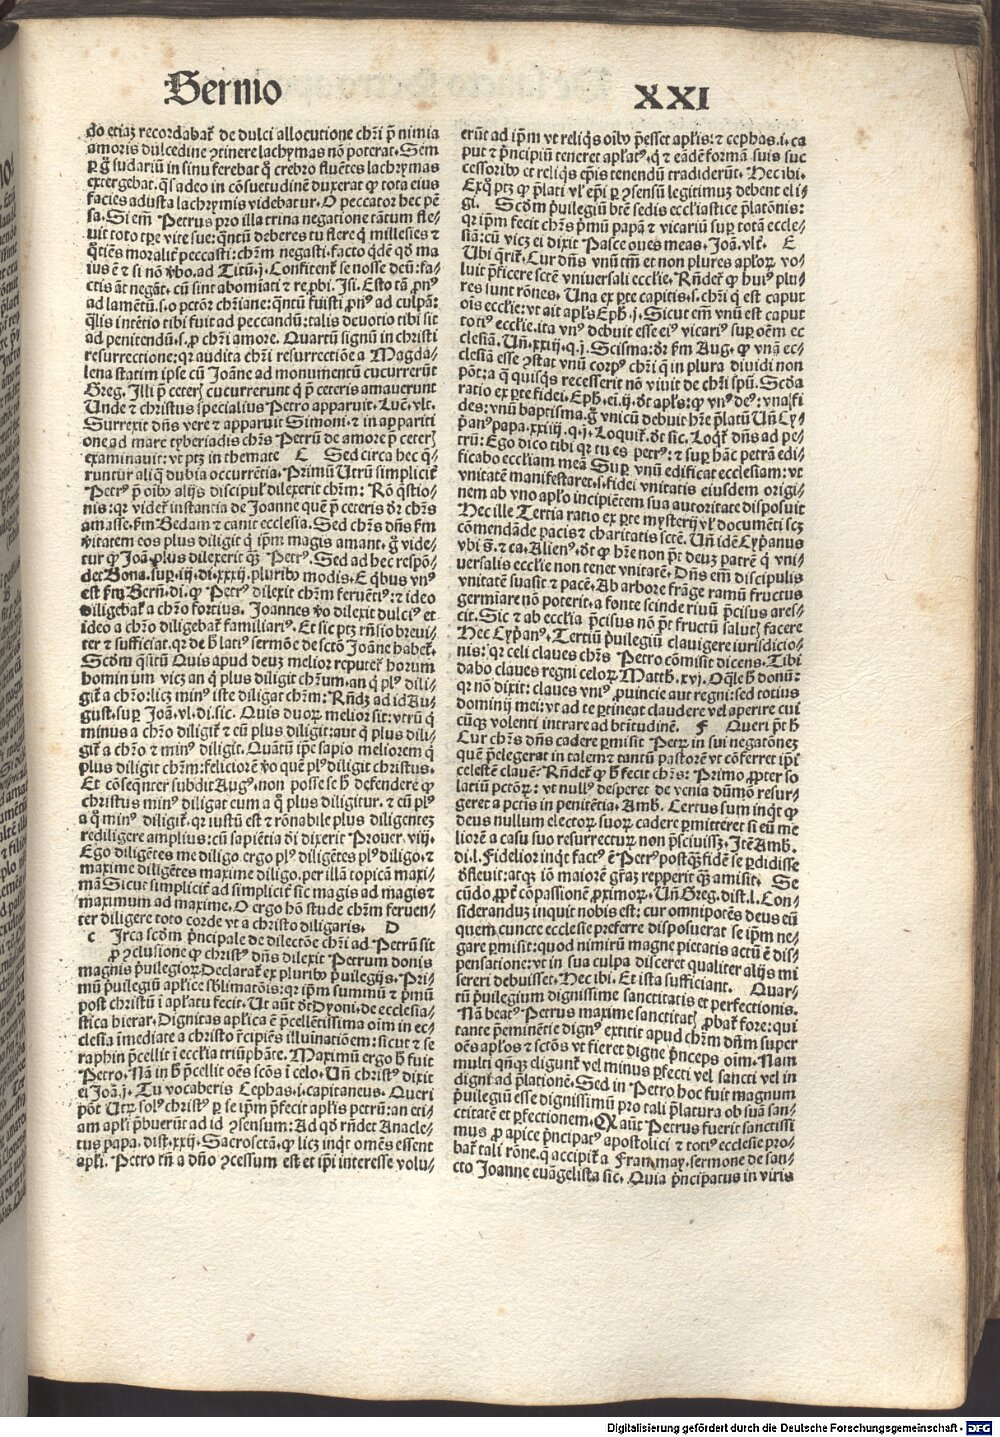 Sermo XXI
do etiaꝫ recordabat᷒ de dulci allocutione chr̄i p̄ nimia
amoris dulcedine ꝯtinere lachymas nō poterat. Sem
ꝑ g̊ sudariū in sinu ferebat q̊ crebro fluētes lachrymas
extergebat. q̄s adeo in cōsuetudinē duxerat ꝙ tota eius
facies adusta lachrymis videbatur. O peccator hec pē
sa. Si em̄ Petrus pro illa trina negatione tātum fle⸗
uit toto tp̄e vite sue: q̄ntū deberes tu flere q̇ millesies ⁊
q̄tiēs moralit᷒ peccasti: chr̄m negasti. facto q̇dē qd̛ ma
ius ē ⁊ si nō v̄bo. ad Titū. j. Confitent᷒ se nosse deū: fa⸗
ctis āt negāt. cū sint abomiati ⁊ reꝓbi. Jsi. Esto tā ꝓn⁹
ad lamētū. s. o pctōr chr̄iane: q̄ntū fuisti ꝓn⁹ ad culpā:
q̄lis intētio tibi fuit ad peccandū: talis deuotio tibi sit
ad penitendū. s. ꝓ chr̄i amore. Quartū signū in christi
resurrectione: qr audita chr̄i resurrectiōe a Magda⸗
lena statim ipse cū Joāne ad monumentū cucurrerūt
Greg. Illi p̄ ceterꝭ cucurrerunt q̇ p̄ ceteris amauerunt
Unde ⁊ christus specialius Petro apparuit. Luc̄. vlt.
Surrexit dn̄s vere ⁊ apparuit Simoni. ⁊ in appariti
one ad mare tyberiadis chr̄s Petrū de amore p̄ ceterꝭ
examinauit: vt ptꝫ in themate C Sed circa hec q̄⸗
runtur aliq̄ dubia occurrētia. Primū Utrū simplicit᷒
Petr⁹ p̄ oībꝰ alijs discipul᷒ dilexerit chr̄m: Rō q̄stio⸗
nis: qr videt᷒ instantia de Joanne quē p̄ ceteris dr̄ chr̄s
amasse. s̄m Bedam ⁊ canit ecclesia. Sed chr̄s dn̄s s̄m
v̄itatem eos plus diligit q̇ ipm̄ magis amant. g̊ vide⸗
tur ꝙ Joān̄. plus dilexerit q̄ꝫ Petr⁹. Sed ad hec respō⸗
det Bona. suꝑ. iij. di. xxxij. pluribꝰ modis. E qbus vn⁹
est s̄m Bern̄. di. ꝙ Petr⁹ dilexit chr̄m feruēti⁹. ⁊ ideo
diligebat᷒ a chr̄o fortius. Joannes v̄o dilexit dulci⁹ et
ideo a chr̄o diligebat᷒ familiari⁹. Et sic ptꝫ rn̄sio breui⸗
ter ⁊ sufficiat. qr de h̊ lati⁹ sermōe de sctō Joāne habet᷒.
Scd̛m q̄sitū Quis apud deuꝫ melior reputet᷒ horum
hominum vicꝫ an q̇ plus diligit chr̄tum. an q̇ pl⁹ dili⸗
git᷒ a chr̄o: licꝫ min⁹ iste diligat chr̄m: Rn̄dꝫ ad id Au⸗
gust. suꝑ Joā. vl. di. sic. Quis duoꝝ melior sit: vtrū q̇
minus a chr̄o diligit᷒ ⁊ cū plus diligit: aut q̇ plus dili⸗
git᷒ a chr̄o ⁊ min⁹ diligit. Quātū ip̄e sapio meliorem q̇
plus diligit chr̄m: feliciorē v̄o quē pl⁹ diligit christus.
Et cōseq̄nter subdit Aug⁹. non posse se h̊ defendere ꝙ
christus min⁹ diligat eum a q̊ plus diligitur. ⁊ cū pl⁹
a q̊ min⁹ diligit᷒. qr iustū est ⁊ rōnabile plus diligenteꝫ
rediligere amplius: cū sapiētia dī dixerit Prouer. viij.
Ego diligētes me diligo ergo pl⁹ diligētes pl⁹ diligo. ⁊
maxime diligētes maxime diligo. per illā topicā maxi⸗
mā Sicut simplicit᷒ ad simplicit᷒ sic magis ad magis ⁊
maximum ad maxime. O ergo hō stude chr̄m feruen⸗
ter diligere toto corde vt a christo diligaris. D
c Irca scd̛m p̄ncipale de dilectōe chr̄i ad Petrū sit
ꝓ ꝯclusione ꝙ christ⁹ dn̄s dilexit Petrum donis
magnis p̄uilegioꝝ. Declarat᷒ ex pluribꝰ p̄uilegijs. Pri⸗
mū p̄uilegiū apl̄ice sb̄limatōis: qr ipm̄ summū ⁊ p̄mū
post christū ī apl̄atu fecit. Ut aūt dt̛ Dyoni. de ecclesia⸗
stica hierar. Dignitas apl̄ica ē p̄cellētissima oīm in ec⸗
clesia īmediate a christo r̄cipiēs illuīatiōem: sicut ⁊ se
raphin p̄cellit ī eccl̄ia triūphāte. Maximū ergo h̊ fuit
Petro. Nā in h̊ p̄cellit oēs scōs ī celo. Un̄ christ⁹ dixit
ei Joā. j. Tu vocaberis Cephas. i. capitaneus. Queri
pōt Utꝝ sol⁹ christ⁹ ꝑ se ipm̄ p̄fecit apl̄is petrū: an eti⸗
am apl̄i p̄buerūt ad id ꝯsensum: Ad qd̛ rn̄det Anacle⸗
tus papa. dist. xxij. Sacrosctā. ꝙ licꝫ inq̇t omēs essent
apl̄i. Petro tn̄ a dn̄o ꝯcessum est et ip̄i interesse volu⸗
erūt ad ipm̄ vt reliq̇s oībꝰ p̄esset apl̄is: ⁊ cephas. i. ca
put ⁊ p̄ncipiū teneret apl̄at⁹. q̇ ⁊ eādē formā suis suc
cessoribꝰ et reliq̇s ep̄is tenendū tradiderūt. Hec ibi.
Ex q̊ ptꝫ ꝙ p̄lati vl̛ ep̄i ꝑ ꝯsensū legitimuꝫ debent eli⸗
gi. Scd̛m p̄uilegiū btē sedis eccl̄iastice p̄latōnis:
qr ipm̄ fecit chr̄s p̄mū papā ⁊ vicariū suꝑ totā eccle⸗
siā: cū vicꝫ ei dixit Pasce oues meas. Joā. vlt. E
Ubi q̄rit᷒. Cur dn̄s vnū tm̄ et non plures apl̄oꝝ vo⸗
luit p̄ficere sctē vniuersali eccl̄ie. Rn̄det᷒ ꝙ hui⁹ plu⸗
res sunt rōnes. Una ex ꝑte capitis. s. chr̄i q̇ est caput
oīs eccl̄ie: vt ait apl̄s Eph. j. Sicut em̄ vnū est caput
toti⁹ eccl̄ie. ita vn⁹ debuit esse ei⁹ vicari⁹ suꝑ oēm ec
clesiā. Un̄. xxiij. q. j. Scisma: dr̄ s̄m Aug. ꝙ vnā ec⸗
clesiā esse ꝯstat vnū corp⁹ chr̄i q̄ in plura diuidi non
pōt: a q̄ quisq̇s recesserit nō viuit de chr̄i spū. Scd̛a
ratio ex ꝑte fidei. Eph. ei. ij. dt̛ apl̄s: ꝙ vn⁹ de⁹: vna fi
des: vnū baptisma. g̊ vnicū debuit hr̄e p̄latū Un̄ Cy⸗
p̄an⁹ papa. xxiiij. q. j. Loquit᷒. dt̛ sic. Loq̇t᷒ dn̄s ad pe⸗
trū: Ego dico tibi qr tu es petr⁹: ⁊ suꝑ hāc petrā edi⸗
ficabo eccl̄iam meā Suꝑ vnū edificat ecclesiam: vt
vnitatē manifestaret. s. fidei vnitatis eiusdem origi⸗
nem ab vno apl̄o incipiētem sua autoritate disposuit
Hec ille Tertia ratio ex ꝑte mysterij vl̛ documēti scꝫ
cōmendāde pacis ⁊ charitatis sctē. Un̄ idē Cyp̄anus
vbi s̄. ⁊ ca. Alien⁹. dt̛ ꝙ hr̄e non pt̄ deuꝫ patrē q̇ vni⸗
uersalis eccl̄ie non tenet vnitatē. Dn̄s em̄ discipulis
vnitatē suasit ⁊ pacē. Ab arbore frāge ramū fructus
germiare nō poterit. a fonte scinde riuū p̄cisus ares⸗
cit. Sic ⁊ ab eccl̄ia p̄cisus nō pt̄ fructū salutꝭ facere
Hec Cyp̄an⁹. Tertiū p̄uilegiū clauigere iurisdictio⸗
nis: qr celi claues chr̄s Petro cōmisit dicens. Tibi
dabo claues regni celoꝝ. Matth. xvj. O q̄le h̊ donū:
qr nō dixit: claues vni⁹ ꝓuincie aut regni: sed totius
dominij mei: vt ad te ꝑtineat claudere vel aperire cui
cūq̄ꝫ volenti intrare ad bt̄itudinē. F Queri pt̄ h̊
Cur chr̄s dn̄s cadere ꝑmisit Petrꝝ in sui negatōneꝫ
quē p̄elegerat in talem ⁊ tantū pastorē vt cōferret ip̄i
celestē clauē: Rn̄det᷒ ꝙ h̊ fecit chr̄s: Primo ꝓpter so
latiū pctōꝝ: vt null⁹ desperet de venia dūmō resur⸗
geret a pctīs in penitētia. Amb. Certus sum inq̇t ꝙ
deus nullum electoꝝ suoꝝ cadere ꝑmitteret si eū me
liorē a casu suo resurrectuꝝ non p̄sciuissꝫ. Jtē Amb.
di. l. Fidelior inq̇t fact⁹ ē Petr⁹ postq̄ꝫ fidē se ꝑdidisse
d̛fleuit: atq̄ꝫ iō maiorē gr̄aꝫ repperit q̄ꝫ amisit. Se
cūdo ꝓpt᷒ cōpassionē ꝓximoꝝ. Un̄ Greg. dist. l. Con⸗
siderandum inquit nobis est: cur omnipotēs deus eū
quem cuncte ecclesie preferre disposuerat se ipm̄ ne⸗
gare ꝑmisit: quod nimirū magne pietatis actū ē dis⸗
pensatione: vt in sua culpa disceret qualiter alijs mi
sereri debuisset. Hec ibi. Et ista sufficiant. Quar⸗
tū p̄uilegium dignissime sanctitatis et perfectionis.
Nā beat⁹ Petrus maxime sanctitatꝭ ꝓbat᷒ fore: qui
tante p̄eminētie dign⁹ extitit apud chr̄m dn̄m super
oēs apl̄os ⁊ sctōs vt fieret digne p̄nceps oīm. Nam
multi qn̄q̄ꝫ eligunt᷒ vel minus ꝑfecti vel sancti vel in
digni ad p̄latione. Sed in Petro hoc fuit magnum
p̄uilegiū esse dignissimū pro tali p̄latura ob suā san⸗
ctitatē et ꝑfectionem. Qꝫ aūt Petrus fuerit sanctissi
mus ꝓ apice p̄ncipat⁹ apostolici ⁊ toti⁹ ecclesie pro⸗
bat᷒ tali rōne. q̄ accipit᷒ a Fran. may. sermone de san⸗
cto Joanne euāgelista sic. Quia p̄ncipatus in viris
Digitalisierung gefördert durch die Deutsche Forschungsgemeinschaft - DFG